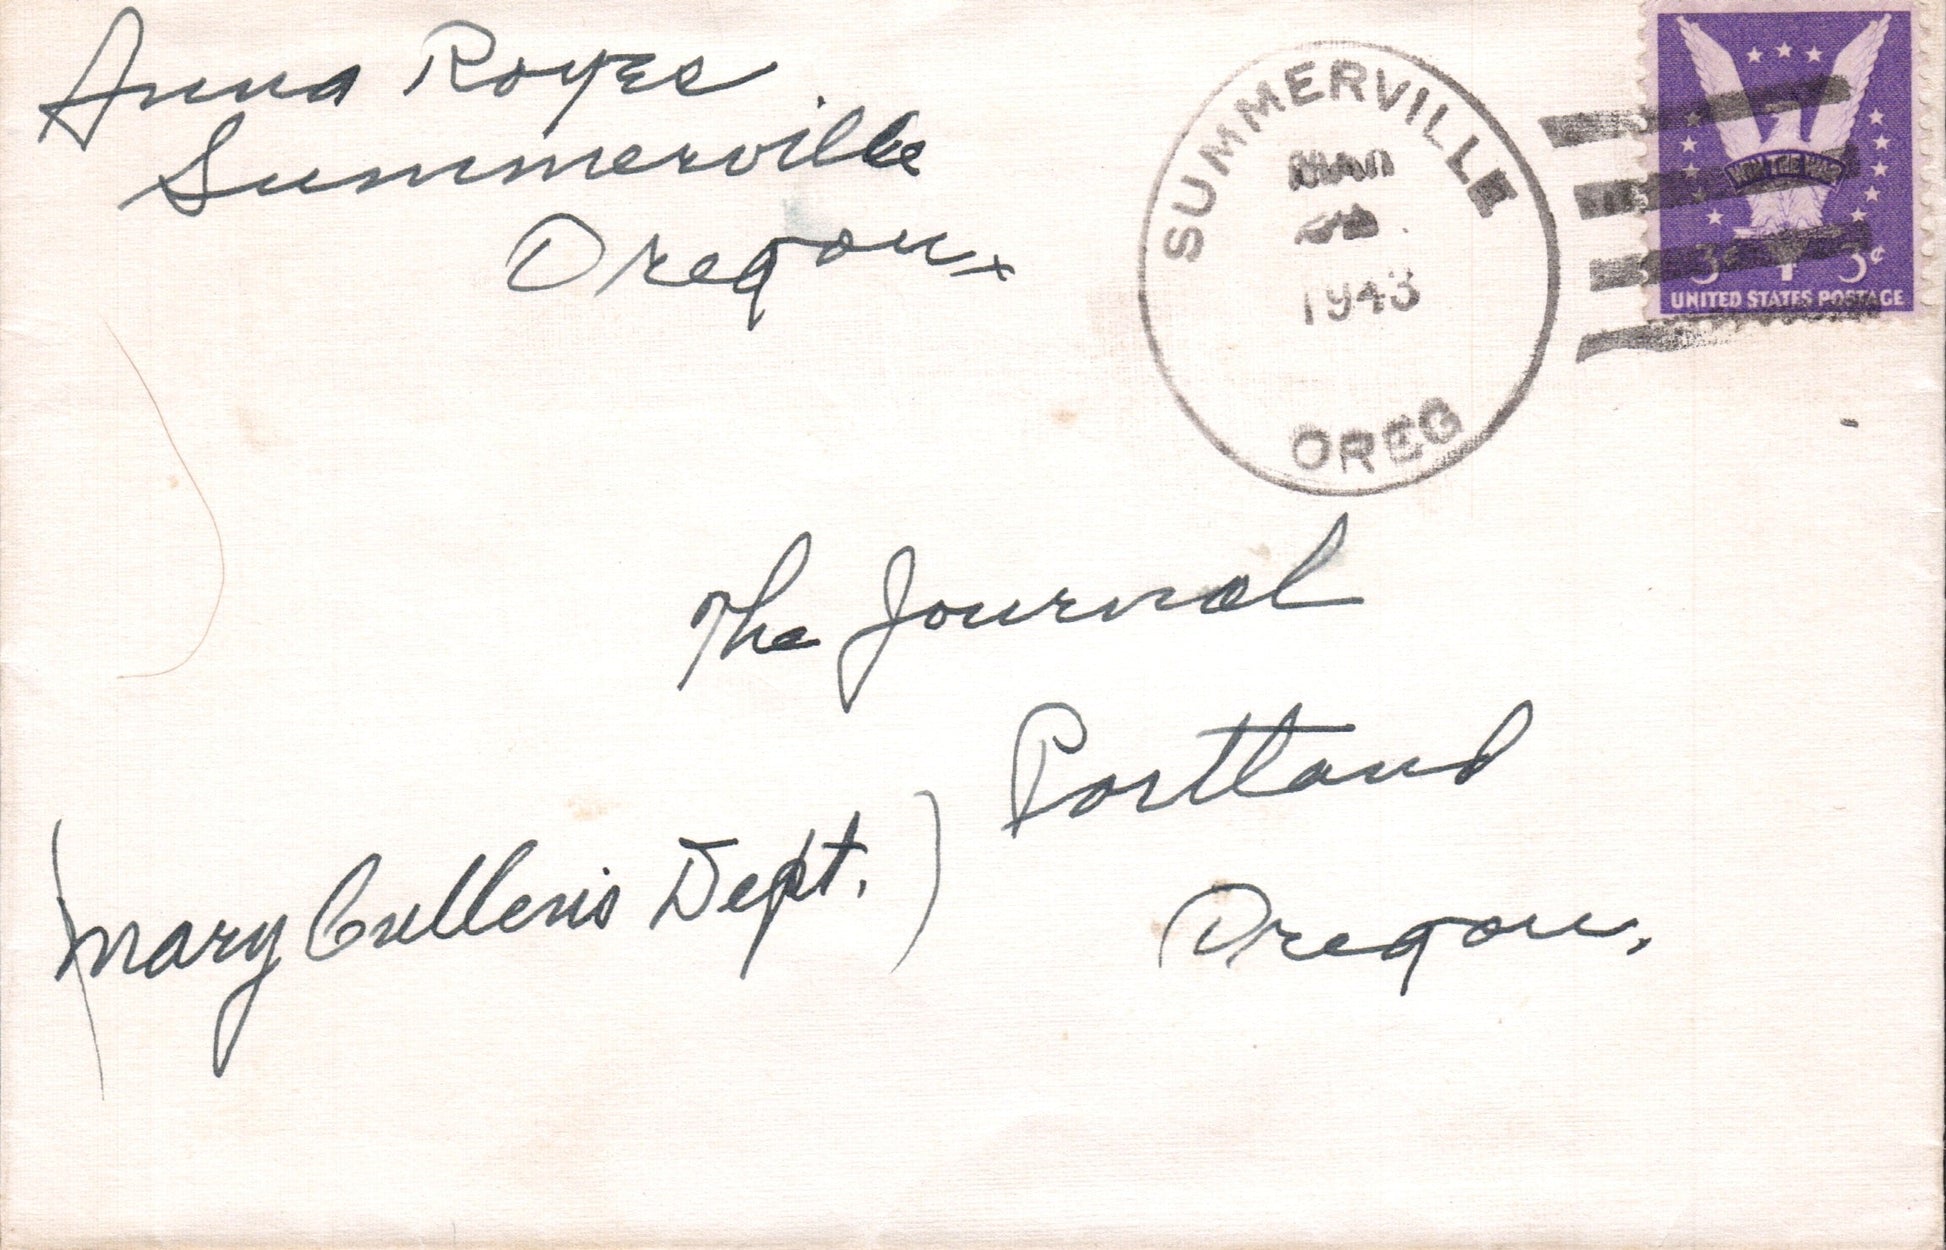 Anna Royes
Summerville
Oregon
SUMMERVILLE
1943
OREG
WIN THE WAR
3¢ 3¢
UNITED STATES POSTAGE
The Journal
Portland
Oregon.
(Mary Cullen's Dept.)